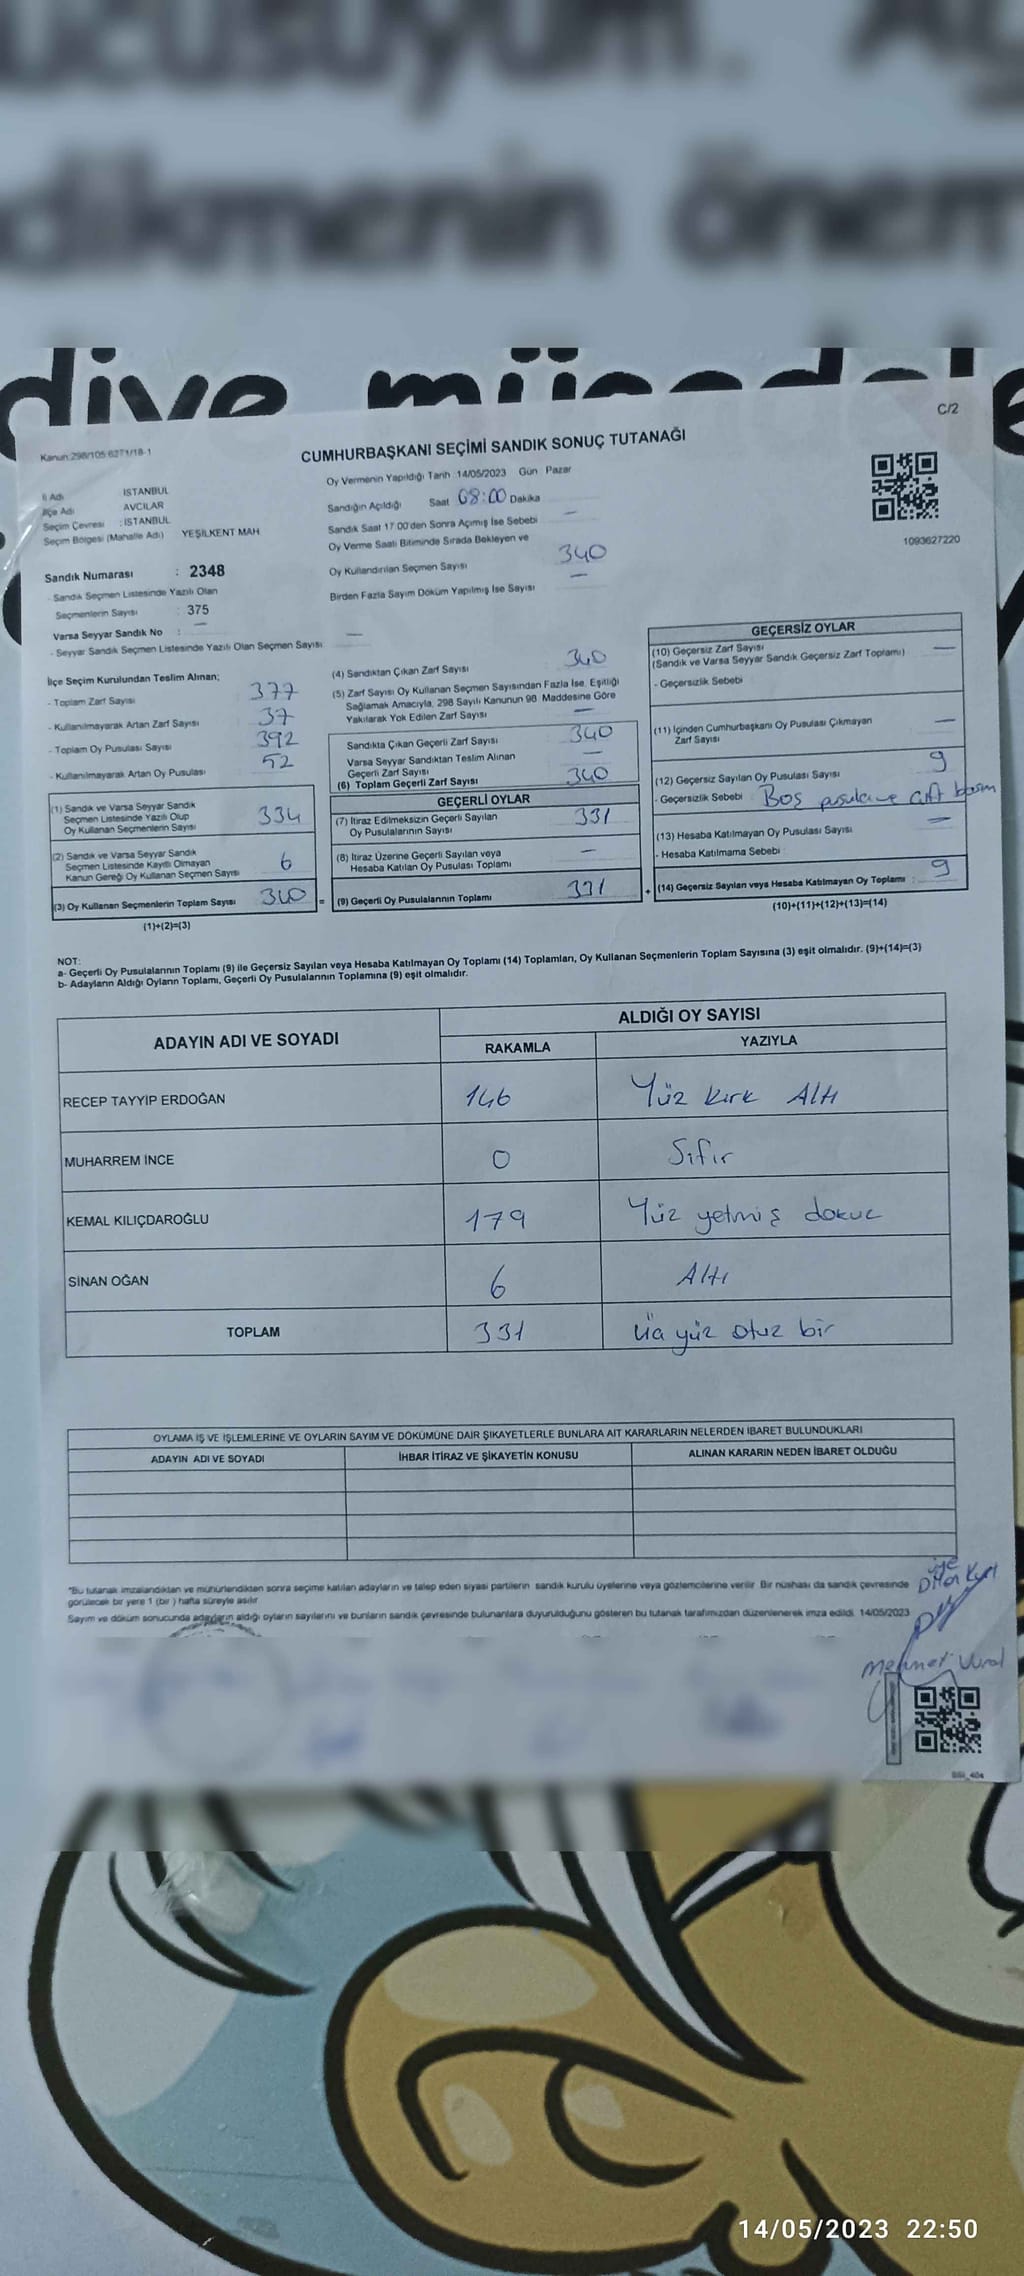 ucusuyum. Al
dikmenin önem
diye mücadele
C/2
Kanun:298/105.6271/18-1
CUMHURBAŞKANI SEÇİMİ SANDIK SONUÇ TUTANAĞI
İl Adı : İSTANBUL
İlçe Adı AVCILAR
Seçim Çevresi : İSTANBUL
Seçim Bölgesi (Mahalle Adı) YEŞİLKENT MAH
Sandık Numarası : 2348
- Sandık Seçmen Listesinde Yazılı Olan
Seçmenlerin Sayısı : 375
Varsa Seyyar Sandık No : —
- Seyyar Sandık Seçmen Listesinde Yazılı Olan Seçmen Sayısı —
Oy Vermenin Yapıldığı Tarih 14/05/2023 Gün Pazar
Sandığın Açıldığı Saat 08:00 Dakika
Sandık Saat 17:00'den Sonra Açımış İse Sebebi —
Oy Verme Saati Bitiminde Sırada Bekleyen ve
Oy Kullandırılan Seçmen Sayısı 340
Birden Fazla Sayım Döküm Yapılmış İse Sayısı —
1093627220
İlçe Seçim Kurulundan Teslim Alınan;
- Toplam Zarf Sayısı 377
- Kullanılmayarak Artan Zarf Sayısı 37
- Toplam Oy Pusulası Sayısı 392
- Kullanılmayarak Artan Oy Pusulası 52
(1) Sandık ve Varsa Seyyar Sandık
Seçmen Listesinde Yazılı Olup
Oy Kullanan Seçmenlerin Sayısı 334
(2) Sandık ve Varsa Seyyar Sandık
Seçmen Listesinde Kayıtlı Olmayan
Kanun Gereği Oy Kullanan Seçmen Sayısı 6
(3) Oy Kullanan Seçmenlerin Toplam Sayısı 340 =
(1)+(2)=(3)
(4) Sandıktan Çıkan Zarf Sayısı 340
(5) Zarf Sayısı Oy Kullanan Seçmen Sayısından Fazla İse, Eşitliği
Sağlamak Amacıyla, 298 Sayılı Kanunun 98. Maddesine Göre
Yakılarak Yok Edilen Zarf Sayısı —
Sandıkta Çıkan Geçerli Zarf Sayısı 340
Varsa Seyyar Sandıktan Teslim Alınan
Geçerli Zarf Sayısı —
(6) Toplam Geçerli Zarf Sayısı 340
GEÇERLİ OYLAR
(7) İtiraz Edilmeksizin Geçerli Sayılan
Oy Pusulalarının Sayısı 331
(8) İtiraz Üzerine Geçerli Sayılan veya
Hesaba Katılan Oy Pusulası Toplamı —
(9) Geçerli Oy Pusulalarının Toplamı 331 +
GEÇERSİZ OYLAR
(10) Geçersiz Zarf Sayısı
(Sandık ve Varsa Seyyar Sandık Geçersiz Zarf Toplamı) —
- Geçersizlik Sebebi
(11) İçinden Cumhurbaşkanı Oy Pusulası Çıkmayan
Zarf Sayısı —
(12) Geçersiz Sayılan Oy Pusulası Sayısı 9
- Geçersizlik Sebebi Boş pusula ve çift basım
(13) Hesaba Katılmayan Oy Pusulası Sayısı —
- Hesaba Katılmama Sebebi
(14) Geçersiz Sayılan veya Hesaba Katılmayan Oy Toplamı : 9
(10)+(11)+(12)+(13)=(14)
NOT:
a- Geçerli Oy Pusulalarının Toplamı (9) ile Geçersiz Sayılan veya Hesaba Katılmayan Oy Toplamı (14) Toplamları, Oy Kullanan Seçmenlerin Toplam Sayısına (3) eşit olmalıdır. (9)+(14)=(3)
b- Adayların Aldığı Oyların Toplamı, Geçerli Oy Pusulalarının Toplamına (9) eşit olmalıdır.
ADAYIN ADI VE SOYADI ALDIĞI OY SAYISI
RAKAMLA YAZIYLA
RECEP TAYYİP ERDOĞAN 146 Yüz kırk Altı
MUHARREM İNCE 0 Sıfır
KEMAL KILIÇDAROĞLU 179 Yüz yetmiş dokuz
SİNAN OĞAN 6 Altı
TOPLAM 331 üç yüz otuz bir
OYLAMA İŞ VE İŞLEMLERİNE VE OYLARIN SAYIM VE DÖKÜMÜNE DAİR ŞİKAYETLERLE BUNLARA AİT KARARLARIN NELERDEN İBARET BULUNDUKLARI
ADAYIN ADI VE SOYADI İHBAR İTİRAZ VE ŞİKAYETİN KONUSU ALINAN KARARIN NEDEN İBARET OLDUĞU
*Bu tutanak imzalandıktan ve mühürlendikten sonra seçime katılan adayların ve talep eden siyasi partilerin sandık kurulu üyelerine veya gözlemcilerine verilir. Bir nüshası da sandık çevresinde
görülecek bir yere 1 (bir) hafta süreyle asılır.
Sayım ve döküm sonucunda adayların aldığı oyların sayılarını ve bunların sandık çevresinde bulunanlara duyurulduğunu gösteren bu tutanak tarafımızdan düzenlenerek imza edildi. 14/05/2023
üye
Mehmet Vural
14/05/2023 22:50